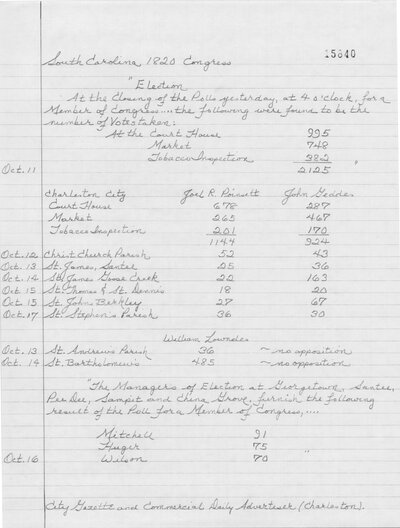 15640
South Carolina 1820 Congress
"Election
At the Closing of the Polls yesterday, at 4 o'clock, for a
Member of Congress.... the following were found to be the
number of Votes taken:
At the Court House 995
Market 748
Tobacco Inspection 382 "
Oct. 11 2125
Charleston City Joel R. Poinsett John Geddes
Court House 678 287
Market 265 467
Tobacco Inspection 201 170
1144 924
Oct. 12 Christ Church Parish 52 43
Oct. 13 St. James, Santee 25 36
Oct. 14 St. James Goose Creek 22 163
Oct. 15 St. Thomas & St. Dennis 18 20
Oct. 15 St. John's Berkley 27 67
Oct. 17 St. Stephen's Parish 36 30
William Lowndes
Oct. 13 St. Andrews Parish 36 ~no opposition
Oct. 14 St. Bartholomew's 485 ~no opposition
"The Managers of Election at Georgetown, Santee,
Pee Dee, Sampit and China Grove, furnish the following
result of the Poll for a Member of Congress,....
Mitchell 91
Huger 75 "
Oct. 16 Wilson 70
City Gazette and Commercial Daily Advertiser (Charleston).